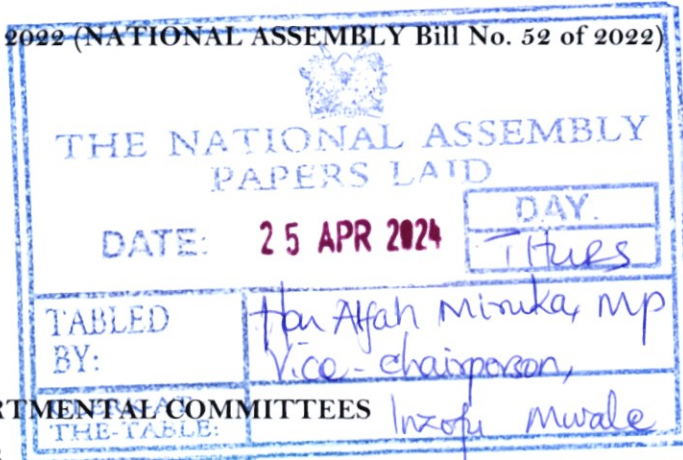 2022 (NATIONAL ASSEMBLY Bill No. 52 of 2022)
THE NATIONAL ASSEMBLY
PAPERS LAID
DAY.
DATE: 25 APR 2024 Thurs
TABLED BY: Hon Alfah Miruka, MP
Vice-chairperson,
RTMENTAL COMMITTEES
THE-TABLE: Inzofu Mwale